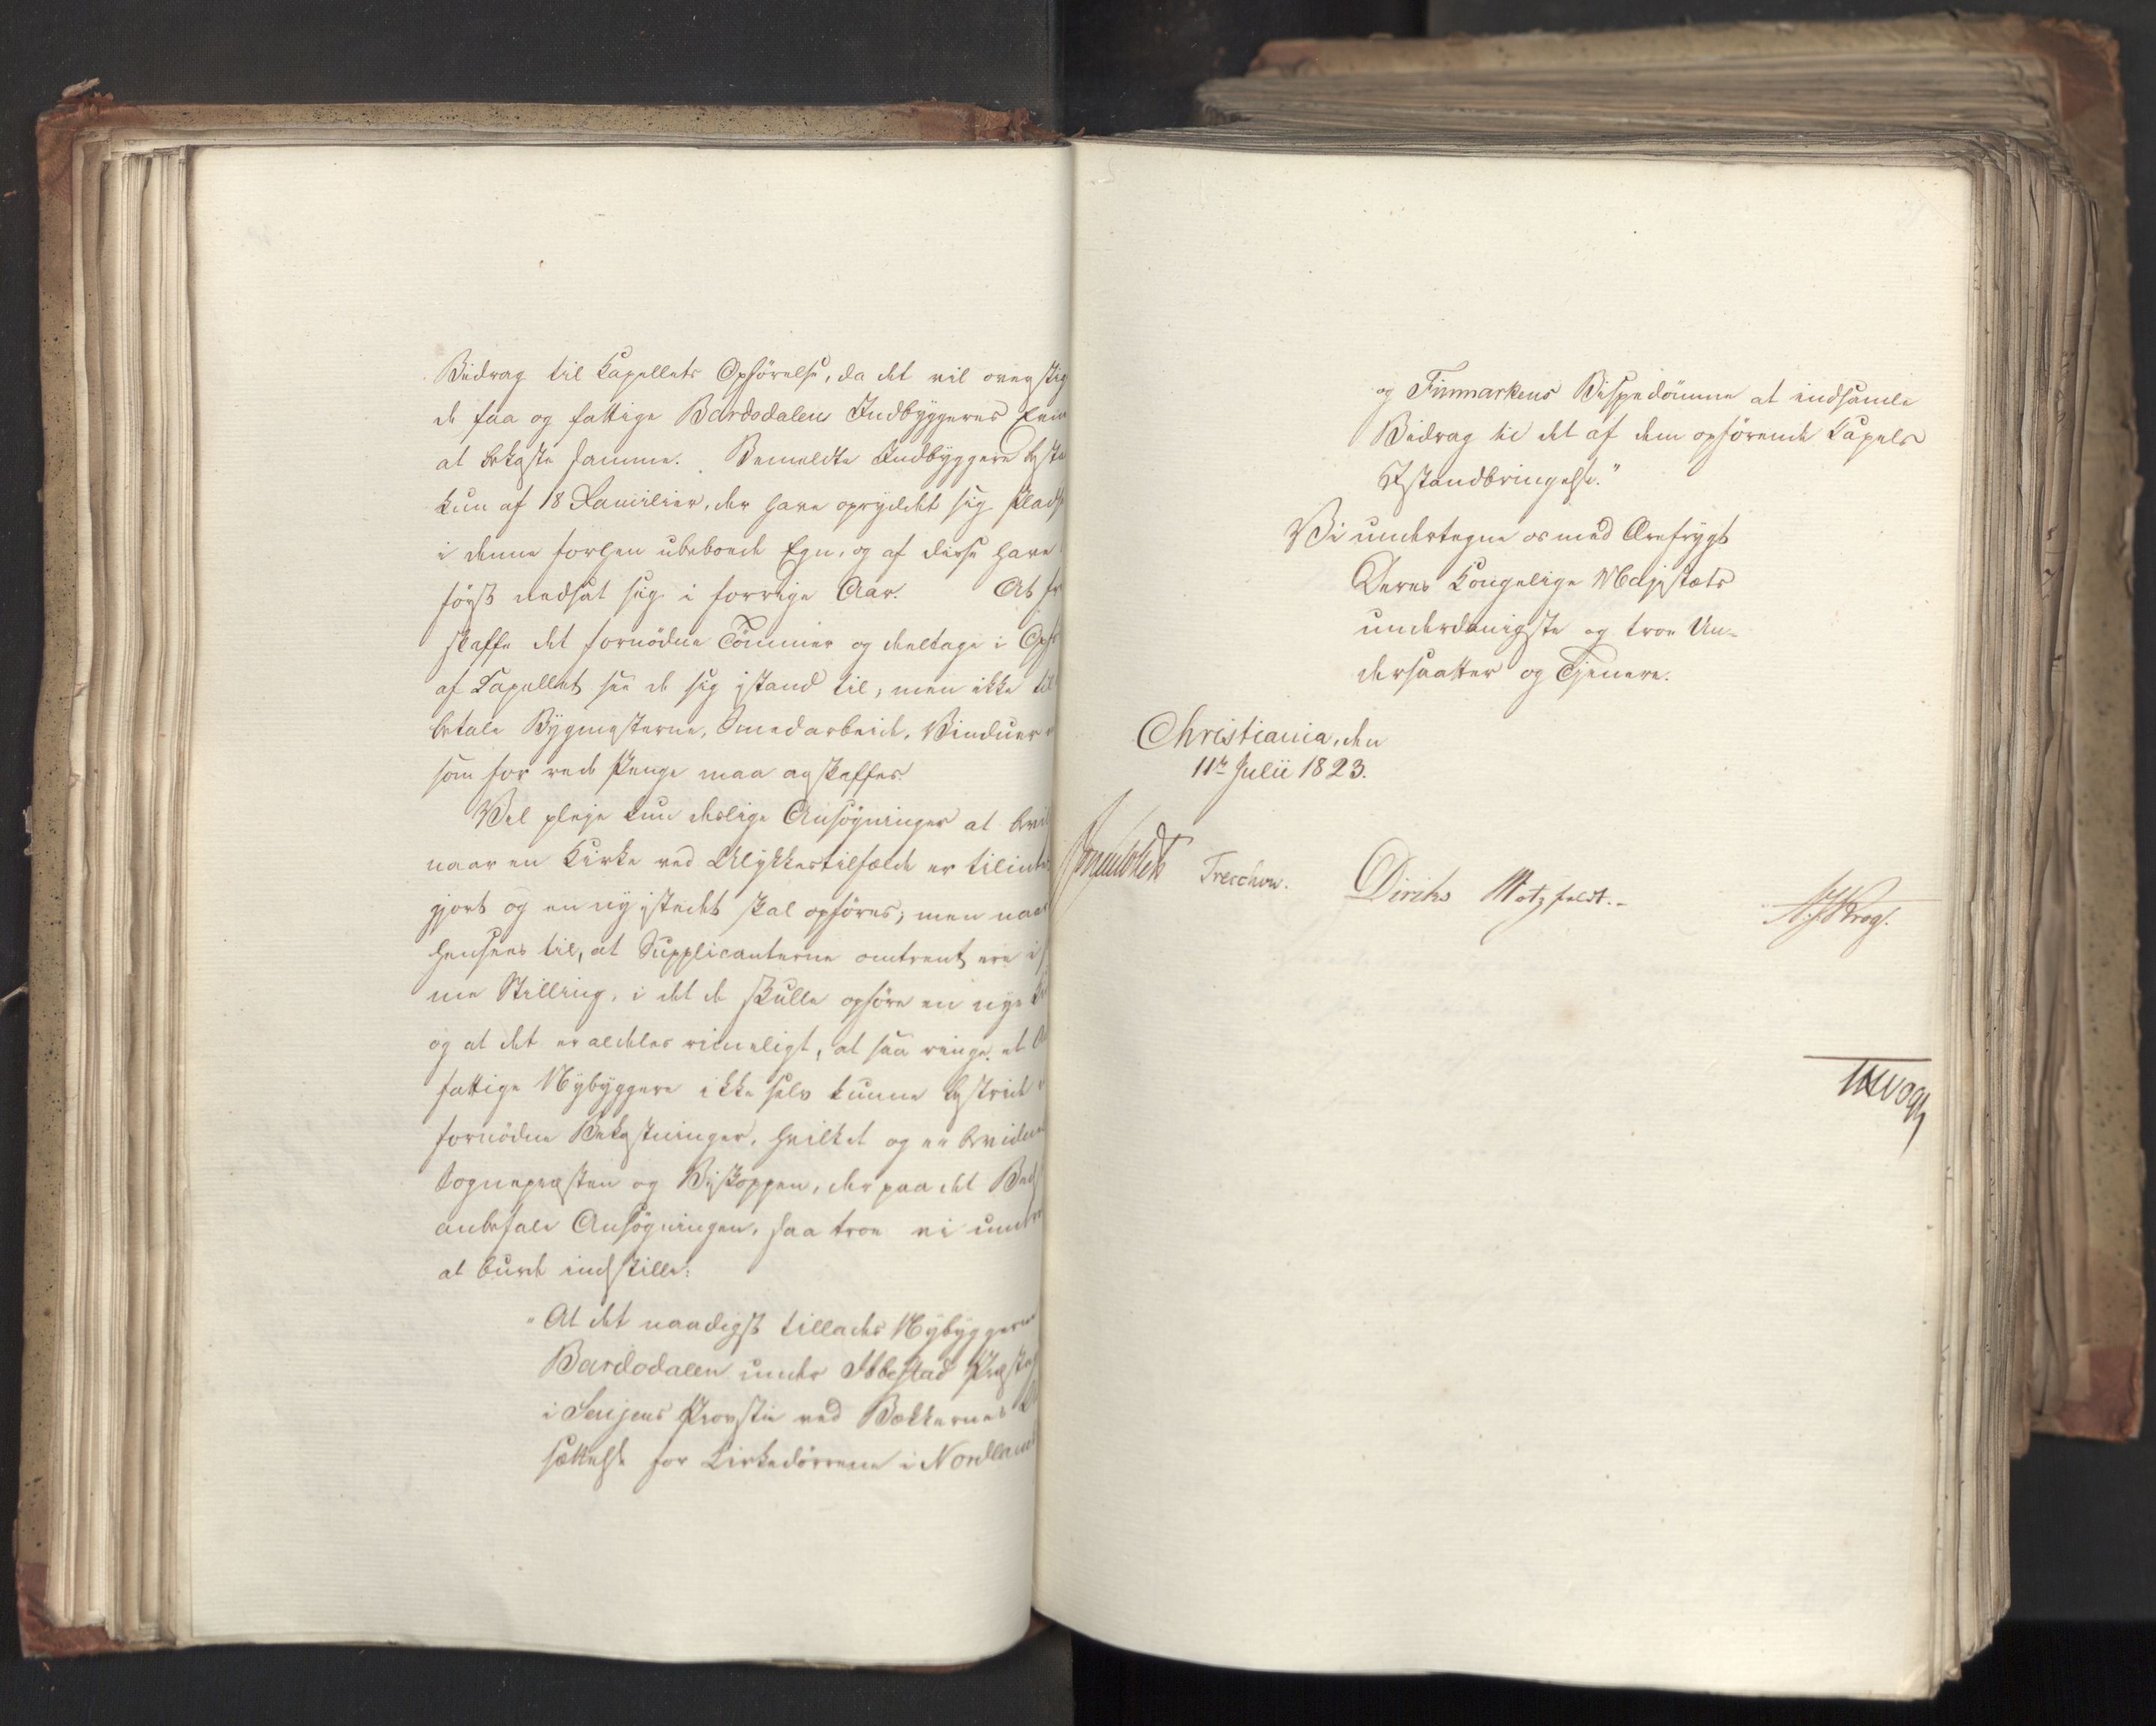 Bidrag til Capellets Opförelse, da det vil overstig
de faa og fattige Bardodalens Indbyggeres Evne
at bekoste samme. Bemeldte Indbyggere besta
kun af 18 Familier, der have opryddet sig Plads
i denne forhen ubeboede Egn, og af disse have
först nedsat sig i forrige Aar. At
skaffe det fornödne Tömmer og deeltage i Opf
af Capellet see de sig istand til, men ikke til
betale Bygmesterne, Smedarbeide, Vinduer
som for rede Penge maa anskaffes.
Vel pleje kun deslige Ansögninger at bevil
naar en Kirke ved Ulykkestilfælde er tilintet
gjort og en ny istedet skal opföres; men naar
hensees til, at Supplicanterne omtrent ere i
me Stilling, i det de skulle opföre en nye
og at det er aldeles rimeligt, at saa ringe et
fattige Nybyggere ikke selv kunne bestride
fornödne Bekostninger, hvilket og er bevidnet
Sognepræsten og Biskoppen, der paa det Beds
anbefale Ansögningen, saa troe vi under
at burde indstille:
"At det naadigst tillades Nybyggerne
Bardodalen under Ibbestad Præste
i Senjens Provstie ved Bækkernes
sættelse for Kirkedörrene i Nordland
og Finmarkens Bispedömme at indsamle
Bidrag til det af dem opförende Capels
Istandbringelse."
Vi undertegne os med Ærefrygt
Deres Kongelige Majestæts
underdanigste og troe Un-
dersaatter og Tjenere.
Christiania, den
11te Julii 1823.
Treschow. Diriks Motzfeldt.-
Krog.